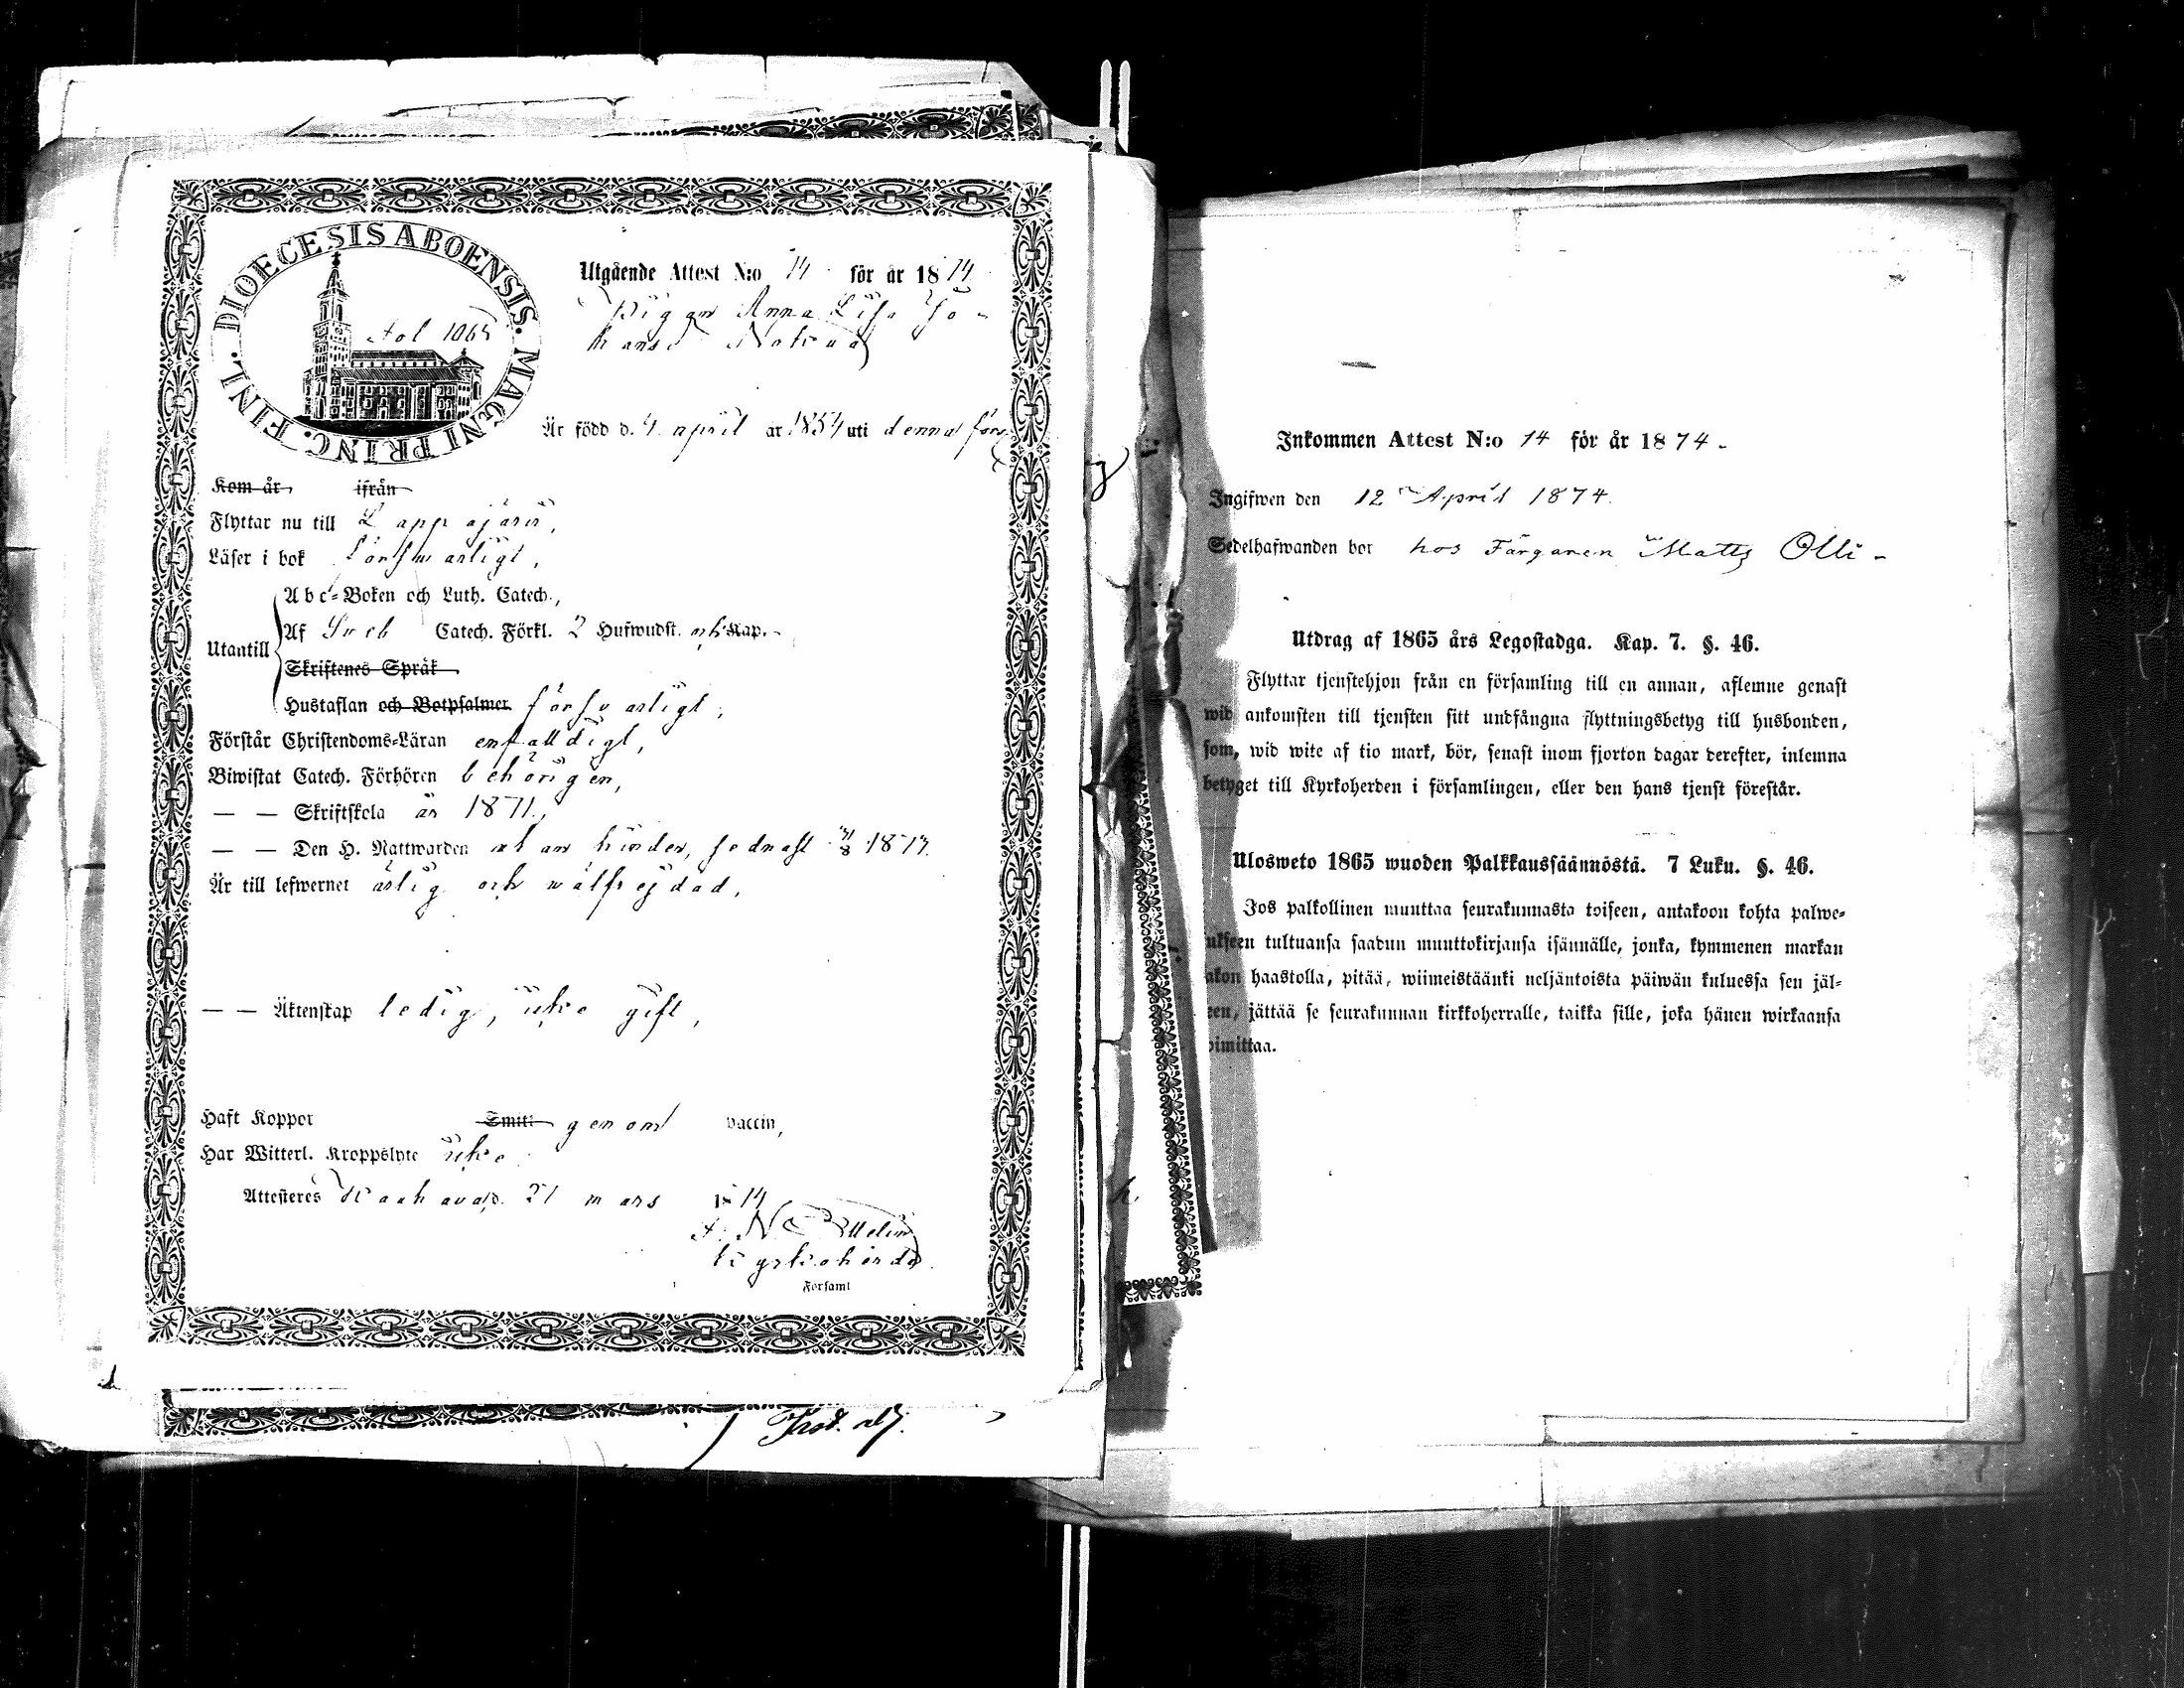 DIOECESIS ABOENSIS. MAGNI PRINC. FINL.
Fol 1065
Utgående Attest N:o 74 för år 1874
Pigan Anna Lisa Jo-
hansd
Är född d. 4 april år 1854 uti denna förs.
Kom år ifrån
Flyttar nu till Lappajärvi,
Läser i bok försvarligt,
Utantill
Abc-Boken och Luth. Catech.,
Af Sveb Catech. Förkl. 2 Hufwudst. och Kap.
Skriftenes Språk
Hustaflan och Botpsalmer försvarligt,
Förstår Christendoms-Läran enfaldigt,
Biwistat Catech. Förhören behörigen,
— — Skriftskola år 1871.,
— — Den H. Nattwarden utan hinder, sednast 1873.
Är till lefwernet ärlig och wälfrejdad,
— — Äktenskap ledig, icke gift,
Haft Koppor Smitt genom vaccin,
Har Witterl. Kroppslyte icke
Attesteres Kauhava 21 mars 1874
kyrkoherde.
Församl
Inkommen Attest N:o 14 för år 1874.
Ingifwen den 12 April 1874.
Sedelhafwanden bor hos Färgaren Matts Olli-
Utdrag af 1865 års Legostadga. Kap. 7. §. 46.
Flyttar tjenstehjon från en församling till en annan, aflemne genast
wid ankomsten till tjensten sitt undfångna flyttningsbetyg till husbonden,
som, wid wite af tio mark, bör, senast inom fjorton dagar derefter, inlemna
betyget till Kyrkoherden i församlingen, eller den hans tjenst förestår.
Ulosweto 1865 wuoden Palkkaussäännöstä. 7 Luku. §. 46.
Jos palkollinen muuttaa seurakunnasta toiseen, antakoon kohta palwe-
lukseen tultuansa saadun muuttokirjansa isännälle, jonka, kymmenen markan
sakon haastolla, pitää, wiimeistäänki neljäntoista päiwän kuluessa sen jäl-
keen, jättää se seurakunnan kirkkoherralle, taikka sille, joka hänen wirkaansa
toimittaa.